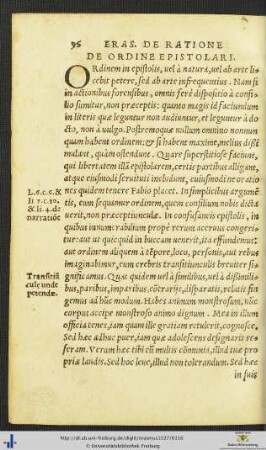 96 ERAS. DE RATIONE
DE ORDINE EPISTOLARI.
ORdinem in epistolis, uel à natura, uel ab arte li
cebit petere, sed ab arte infrequentius. Nam si
in actionibus forensibus, omnis ferè dispositio à consi-
lio sumitur, non præceptis: quanto magis id faciundum
in literis quæ leguntur non audiuntur, et leguntur à do
cto, non à uulgo. Postremo quia nullum omnino nonnun
quam habent ordinem: & si habent maxime, melius dissi
mulant, quàm ostendunt. Quare superstitiose faciunt,
qui libertatem illā epistolarem, certis partibus alligāt,
atque eiusmodi seruituti includunt, cuiusmodi ne orati
L. 6. c. 5. & ones quidem tenere Fabio placet. In simplicibus argumē
li 7. c. 10. tis, eam sequimur ordinem, quem consilium nobis dicta
& li 4. de uerit, non præceptiunculæ. In confusaneis epistolis, in
narratiōe quibus
rum rerum aceruus congeri-
tur: aut ut quicquid in buccam uenerit, ita effundemus:
aut ordinem aliquem à tēpore, loco, personis, aut rebus
imaginabimur, eum crebris transitiunculis breuiter si
Transitiū gnificamus. Quæ quidem uel à similibus, uel à dissimili-
culæ unde bus, paribus, imparibus, cōtrarijs, disparatis, relatis fin
petendæ. gemus ad hūc modum. Habes animum monstrosum, nūc
corpus accipe monstroso animo dignum. Mea in illum
officia tenes, iam quam ille gratiam retulerit, cognosce.
Sed hæc adhuc puer, iam quæ adolescens designarit re-
feram. Verum hæc tibi cū multis cōmunia, illud tuæ pro
priæ laudis. Sed hoc leue, illud non tolerandum. Sed hæc
in suis
http://dl.ub.uni-freiburg.de/diglit/
© Universitätsbibliothek Freiburg